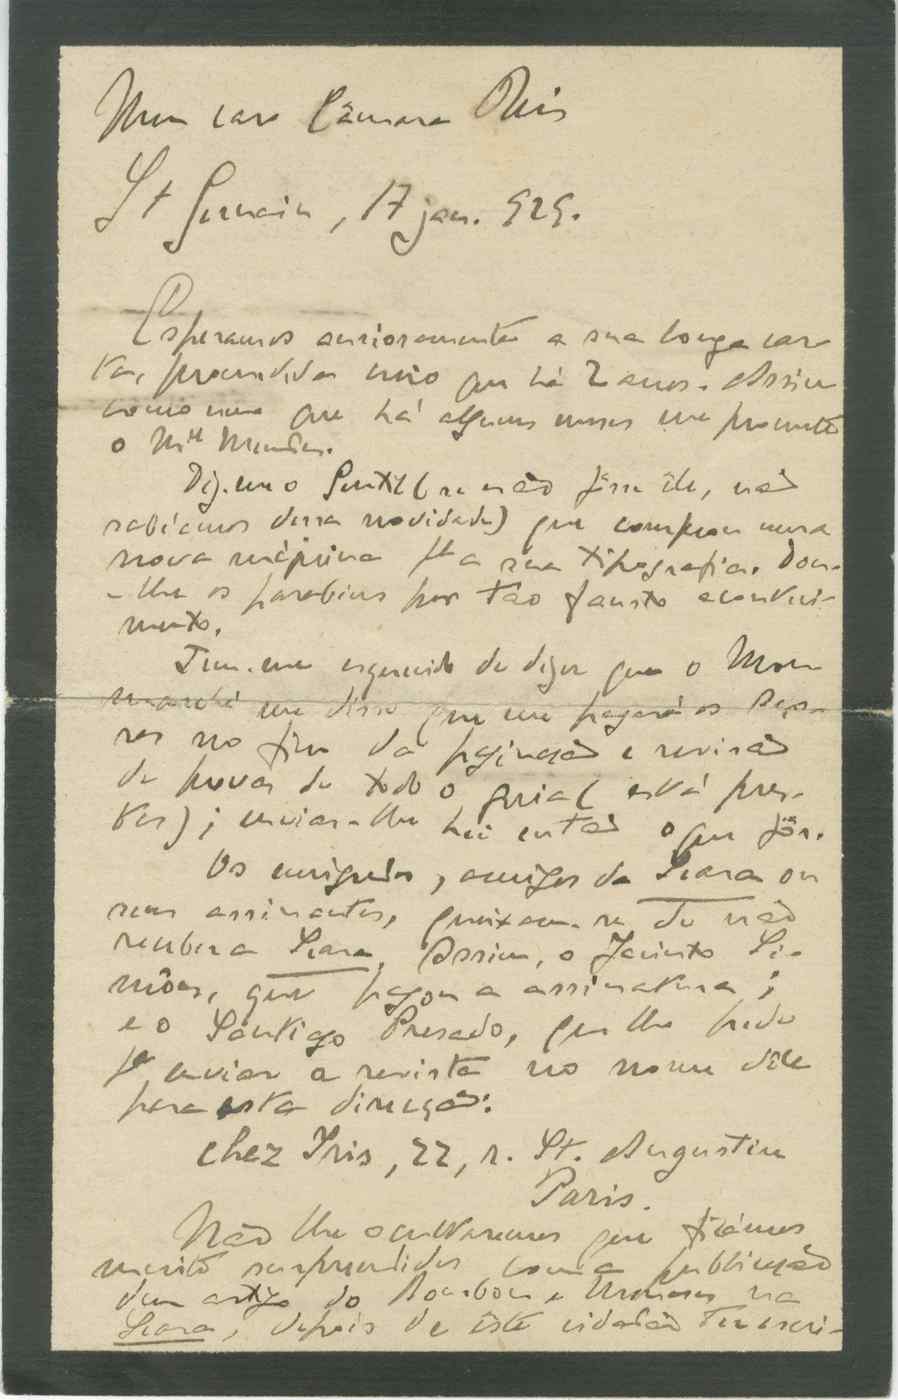 Meu caro Câmara Reis
St Germain, 17 jan. 929.
Esperamos ansiosamente a sua longa car-
ta, prometida creio que há 2 anos. Assim
como uma que há alguns meses me prometeu
o Mel Mendes.
Diz-me o Gentil (se não fôsse êle, não
sabíamos dessa novidade) que comprou uma
nova máquina pa a sua tipografia. Dou-
-lhe os parabens por tão fausto aconteci-
mento.
Tem-me esquecido de dizer que o Mon
marché me disse que me pagará os
no fim da paginação e revisão
de provas de todo o guia (está pres-
tes); enviar-lhe hei então o que fôr.
Os emigrados, amigos da Seara ou
seus assinantes, queixam-se de não
receber a Seara. Assim, o Jacinto Si-
mões, que pagou a assinatura;
e o Santiago Presado, que lhe pede
pa enviar a revista no nome dêle
para esta direcção:
chez Iris, 22, r. St. Augustin
Paris.
Não lhe ocultaremos que ficámos
muito surpreendidos com a publicação
dum artigo do Bourbon e Meneses na
Seara, depois de êste cidadão ter escri-